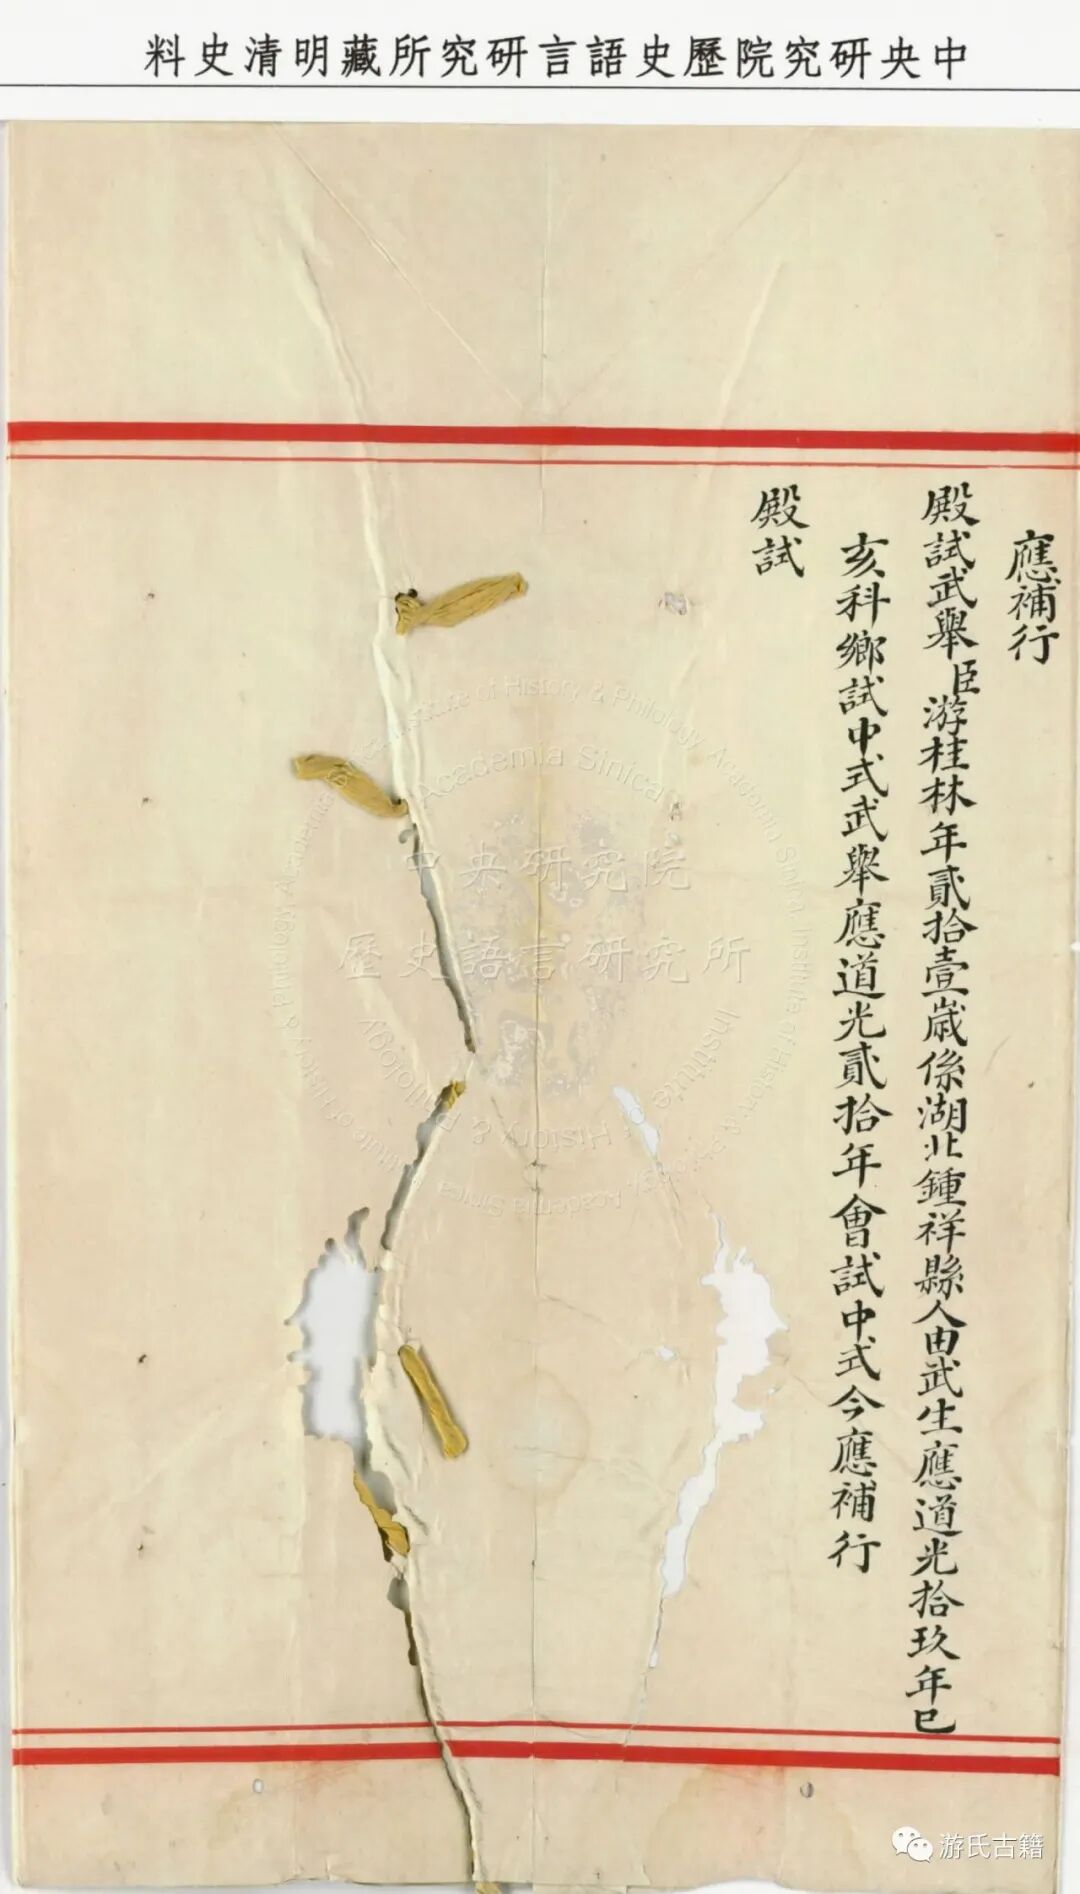 中央研究院歷史語言研究所藏明清史料
應補行
殿試武舉臣游桂林年貳拾壹歲係湖北鍾祥縣人由武生應道光拾玖年已
亥科鄉試中式武舉應道光貳拾年會試中式今應補行
殿試
Institute of History & Philology Academia Sinica
中央研究院
歷史語言研究所
游氏古籍